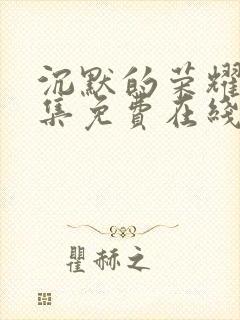 沉默的荣耀
集免费在线
瞿赫之